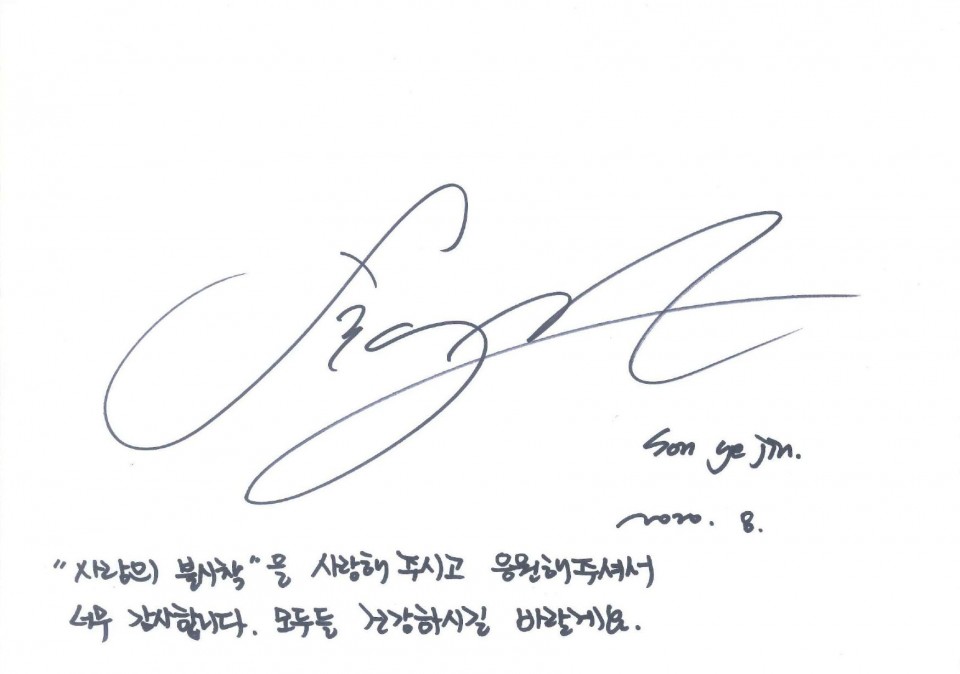 Son ye jin.
2020. 8.
"사랑의 불시착"을 사랑해 주시고 응원해주셔서
너무 감사합니다. 모두들 건강하시길 바랄게요.